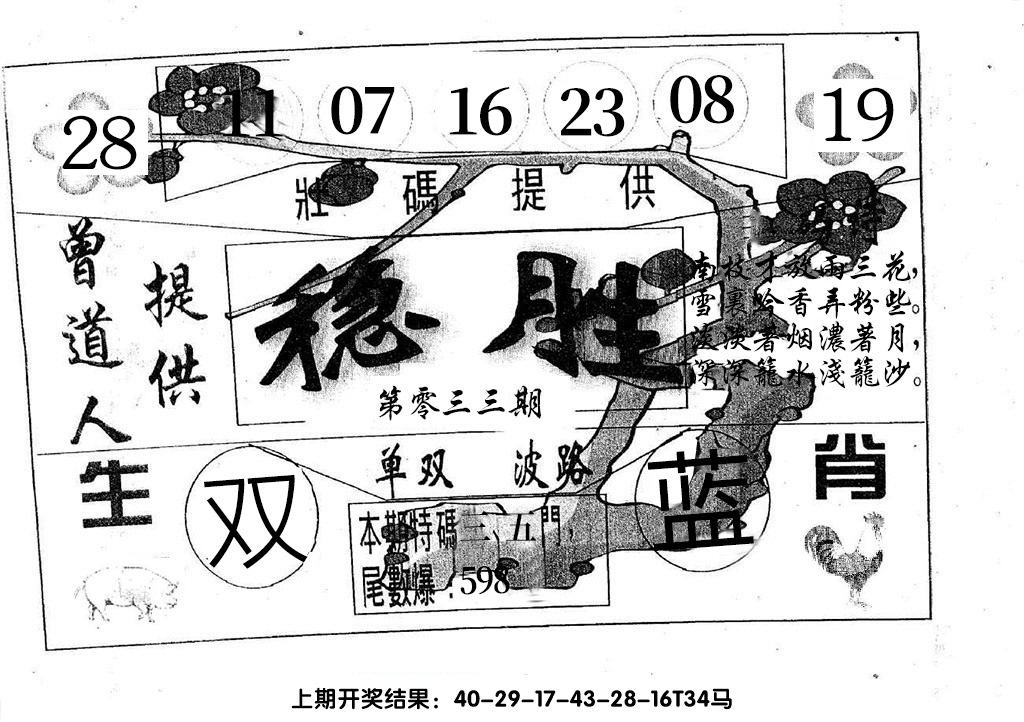 28 11 07 16 23 08 19
壯碼提供
曾道人
提供
稳胜
第零三三期
特
南枝才放雨三花，
雪裏唅香弄粉些。
淡淡著烟濃著月，
深深籠水淺籠沙。
单双 波路
生肖
双
蓝
本期特碼三、五門，
尾數爆：598
上期开奖结果：40-29-17-43-28-16T34马